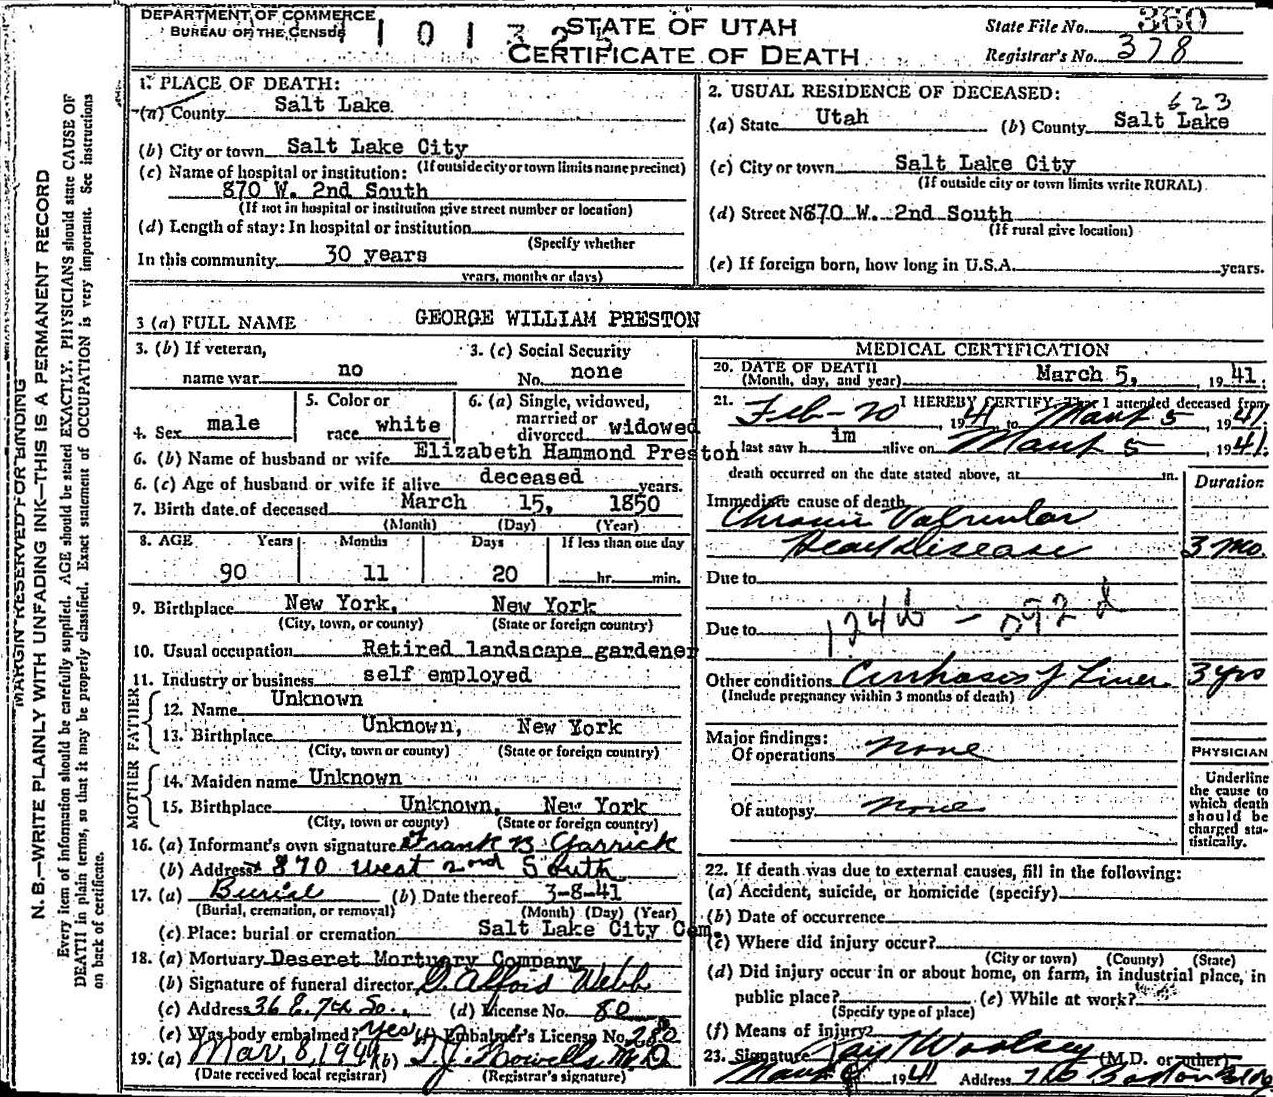 DEPARTMENT OF COMMERCE
BUREAU OF THE CENSUS
STATE OF UTAH
CERTIFICATE OF DEATH
State File No. 360
Registrar's No. 378
MARGIN RESERVED FOR BINDING
N. B.—WRITE PLAINLY WITH UNFADING INK—THIS IS A PERMANENT RECORD
Every item of information should be carefully supplied. AGE should be stated EXACTLY. PHYSICIANS should state CAUSE OF
DEATH in plain terms, so that it may be properly classified. Exact statement of OCCUPATION is very important. See instructions
on back of certificate.
1. PLACE OF DEATH:
(a) County Salt Lake
(b) City or town Salt Lake City
(If outside city or town limits name precinct)
(c) Name of hospital or institution:
870 W. 2nd South
(If not in hospital or institution give street number or location)
(d) Length of stay: In hospital or institution
(Specify whether
In this community 30 years
years, months or days)
2. USUAL RESIDENCE OF DECEASED:
623
(a) State Utah (b) County Salt Lake
(c) City or town Salt Lake City
(If outside city or town limits write RURAL)
(d) Street No 870 W. 2nd South
(If rural give location)
(e) If foreign born, how long in U.S.A. years.
3 (a) FULL NAME GEORGE WILLIAM PRESTON
3. (b) If veteran,
name war no
3. (c) Social Security
No. none
4. Sex male
5. Color or
race white
6. (a) Single, widowed,
married or
divorced widowed
6. (b) Name of husband or wife Elizabeth Hammond Preston
6. (c) Age of husband or wife if alive deceased years.
7. Birth date of deceased March 15, 1850
(Month) (Day) (Year)
8. AGE Years Months Days If less than one day
90 11 20 hr. min.
9. Birthplace New York, New York
(City, town, or county) (State or foreign country)
10. Usual occupation Retired landscape gardener
11. Industry or business self employed
FATHER
12. Name Unknown
13. Birthplace Unknown, New York
(City, town or county) (State or foreign country)
MOTHER
14. Maiden name Unknown
15. Birthplace Unknown, New York
(City, town or county) (State or foreign country)
16. (a) Informant's own signature Frank B Garrick
(b) Address 870 West 2nd South
17. (a) Burial (b) Date thereof 3-8-41
(Burial, cremation, or removal) (Month) (Day) (Year)
(c) Place: burial or cremation Salt Lake City Cem.
18. (a) Mortuary Deseret Mortuary Company
(b) Signature of funeral director D. Alford Webb
(c) Address 36 E. 7th So. (d) License No. 80
(e) Was body embalmed? Yes (f) Embalmer's License No. 280
19. (a) Mar. 8, 1941 (b) T. J. Howells M.D
(Date received local registrar) (Registrar's signature)
MEDICAL CERTIFICATION
20. DATE OF DEATH
(Month, day, and year) March 5, 1941.
21. I HEREBY CERTIFY, That I attended deceased from
Feb-20, 1941 to March 5, 1941.
I last saw h im alive on March 5, 1941.
death occurred on the date stated above, at m.
Duration
Immediate cause of death
Chronic Valvular
Heart Disease 3 mo.
Due to
Due to
124b - 092d
Other conditions Cirrhosis of Liver 3 yrs
(Include pregnancy within 3 months of death)
Major findings:
Of operations none
Of autopsy none
PHYSICIAN
Underline
the cause to
which death
should be
charged sta-
tistically.
22. If death was due to external causes, fill in the following:
(a) Accident, suicide, or homicide (specify)
(b) Date of occurrence
(c) Where did injury occur?
(City or town) (County) (State)
(d) Did injury occur in or about home, on farm, in industrial place, in
public place? (e) While at work?
(Specify type of place)
(f) Means of injury?
23. Signature Ray Woolsey (M.D. or other)
1941 Address 710 Boston Bldg